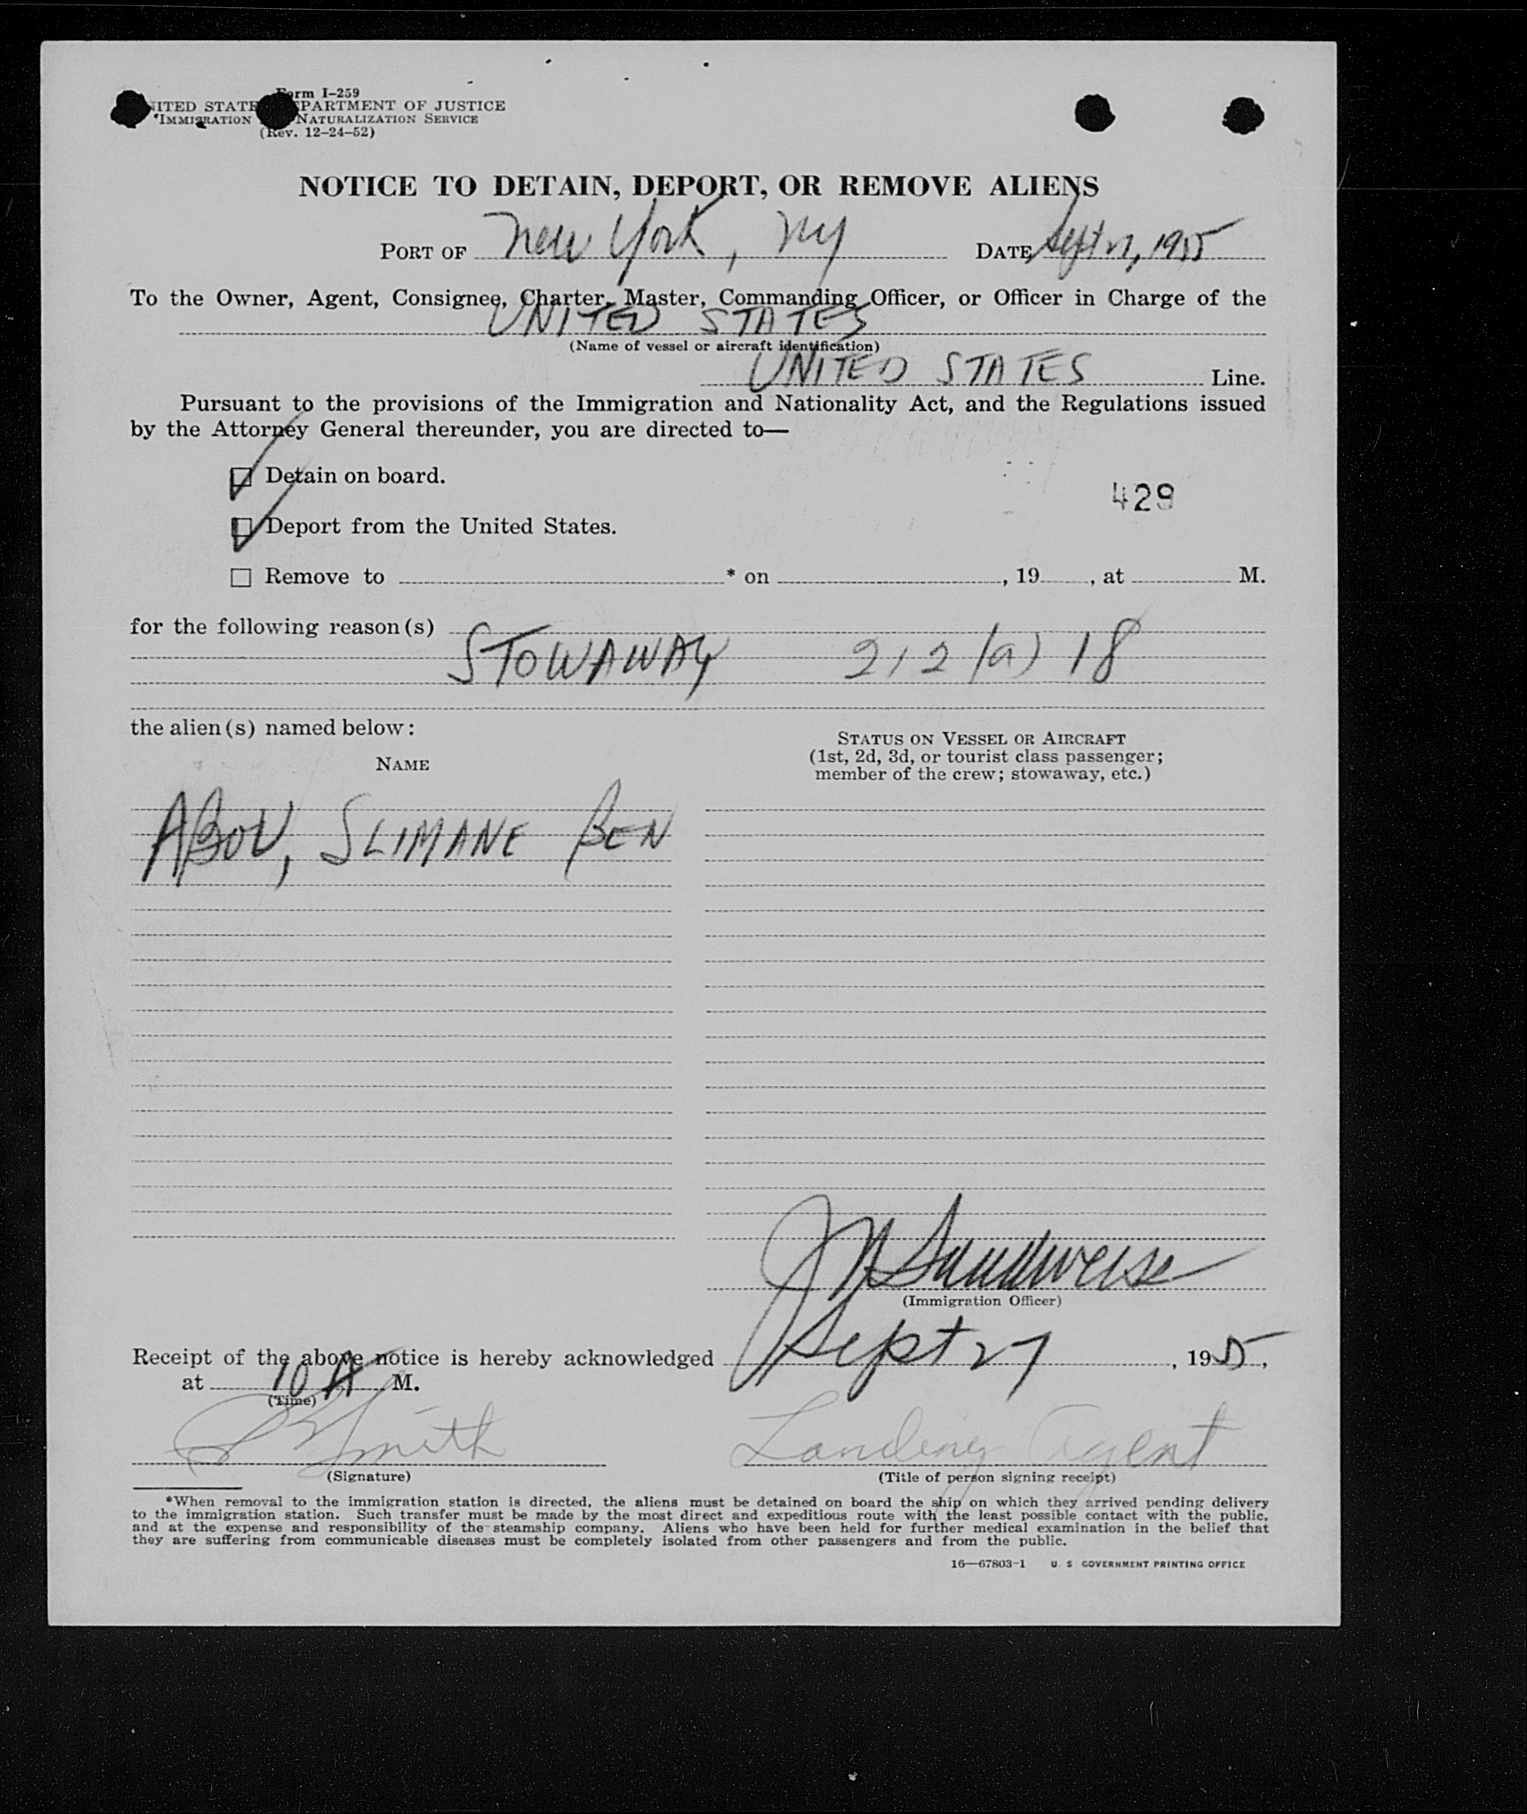 Form I-259
UNITED STATES DEPARTMENT OF JUSTICE
IMMIGRATION NATURALIZATION SERVICE
(Rev. 12-24-52)
NOTICE TO DETAIN, DEPORT, OR REMOVE ALIENS
PORT OF New York, NY DATE Sept 27, 1955
To the Owner, Agent, Consignee, Charter, Master, Commanding Officer, or Officer in Charge of the
UNITED STATES
(Name of vessel or aircraft identification)
UNITED STATES Line.
Pursuant to the provisions of the Immigration and Nationality Act, and the Regulations issued
by the Attorney General thereunder, you are directed to—
Detain on board.
429
Deport from the United States.
Remove to * on , 19 , at M.
for the following reason(s)
STOWAWAY 212 (a) 18
the alien(s) named below:
STATUS ON VESSEL OR AIRCRAFT
(1st, 2d, 3d, or tourist class passenger;
member of the crew; stowaway, etc.)
NAME
ABOU, SLIMANE BEN
(Immigration Officer)
Receipt of the above notice is hereby acknowledged Sept 27, 1955,
at 10 A M.
(Time)
Smith Landing Agent
(Signature) (Title of person signing receipt)
*When removal to the immigration station is directed, the aliens must be detained on board the ship on which they arrived pending delivery
to the immigration station. Such transfer must be made by the most direct and expeditious route with the least possible contact with the public,
and at the expense and responsibility of the steamship company. Aliens who have been held for further medical examination in the belief that
they are suffering from communicable diseases must be completely isolated from other passengers and from the public.
16—67803-1 U. S. GOVERNMENT PRINTING OFFICE